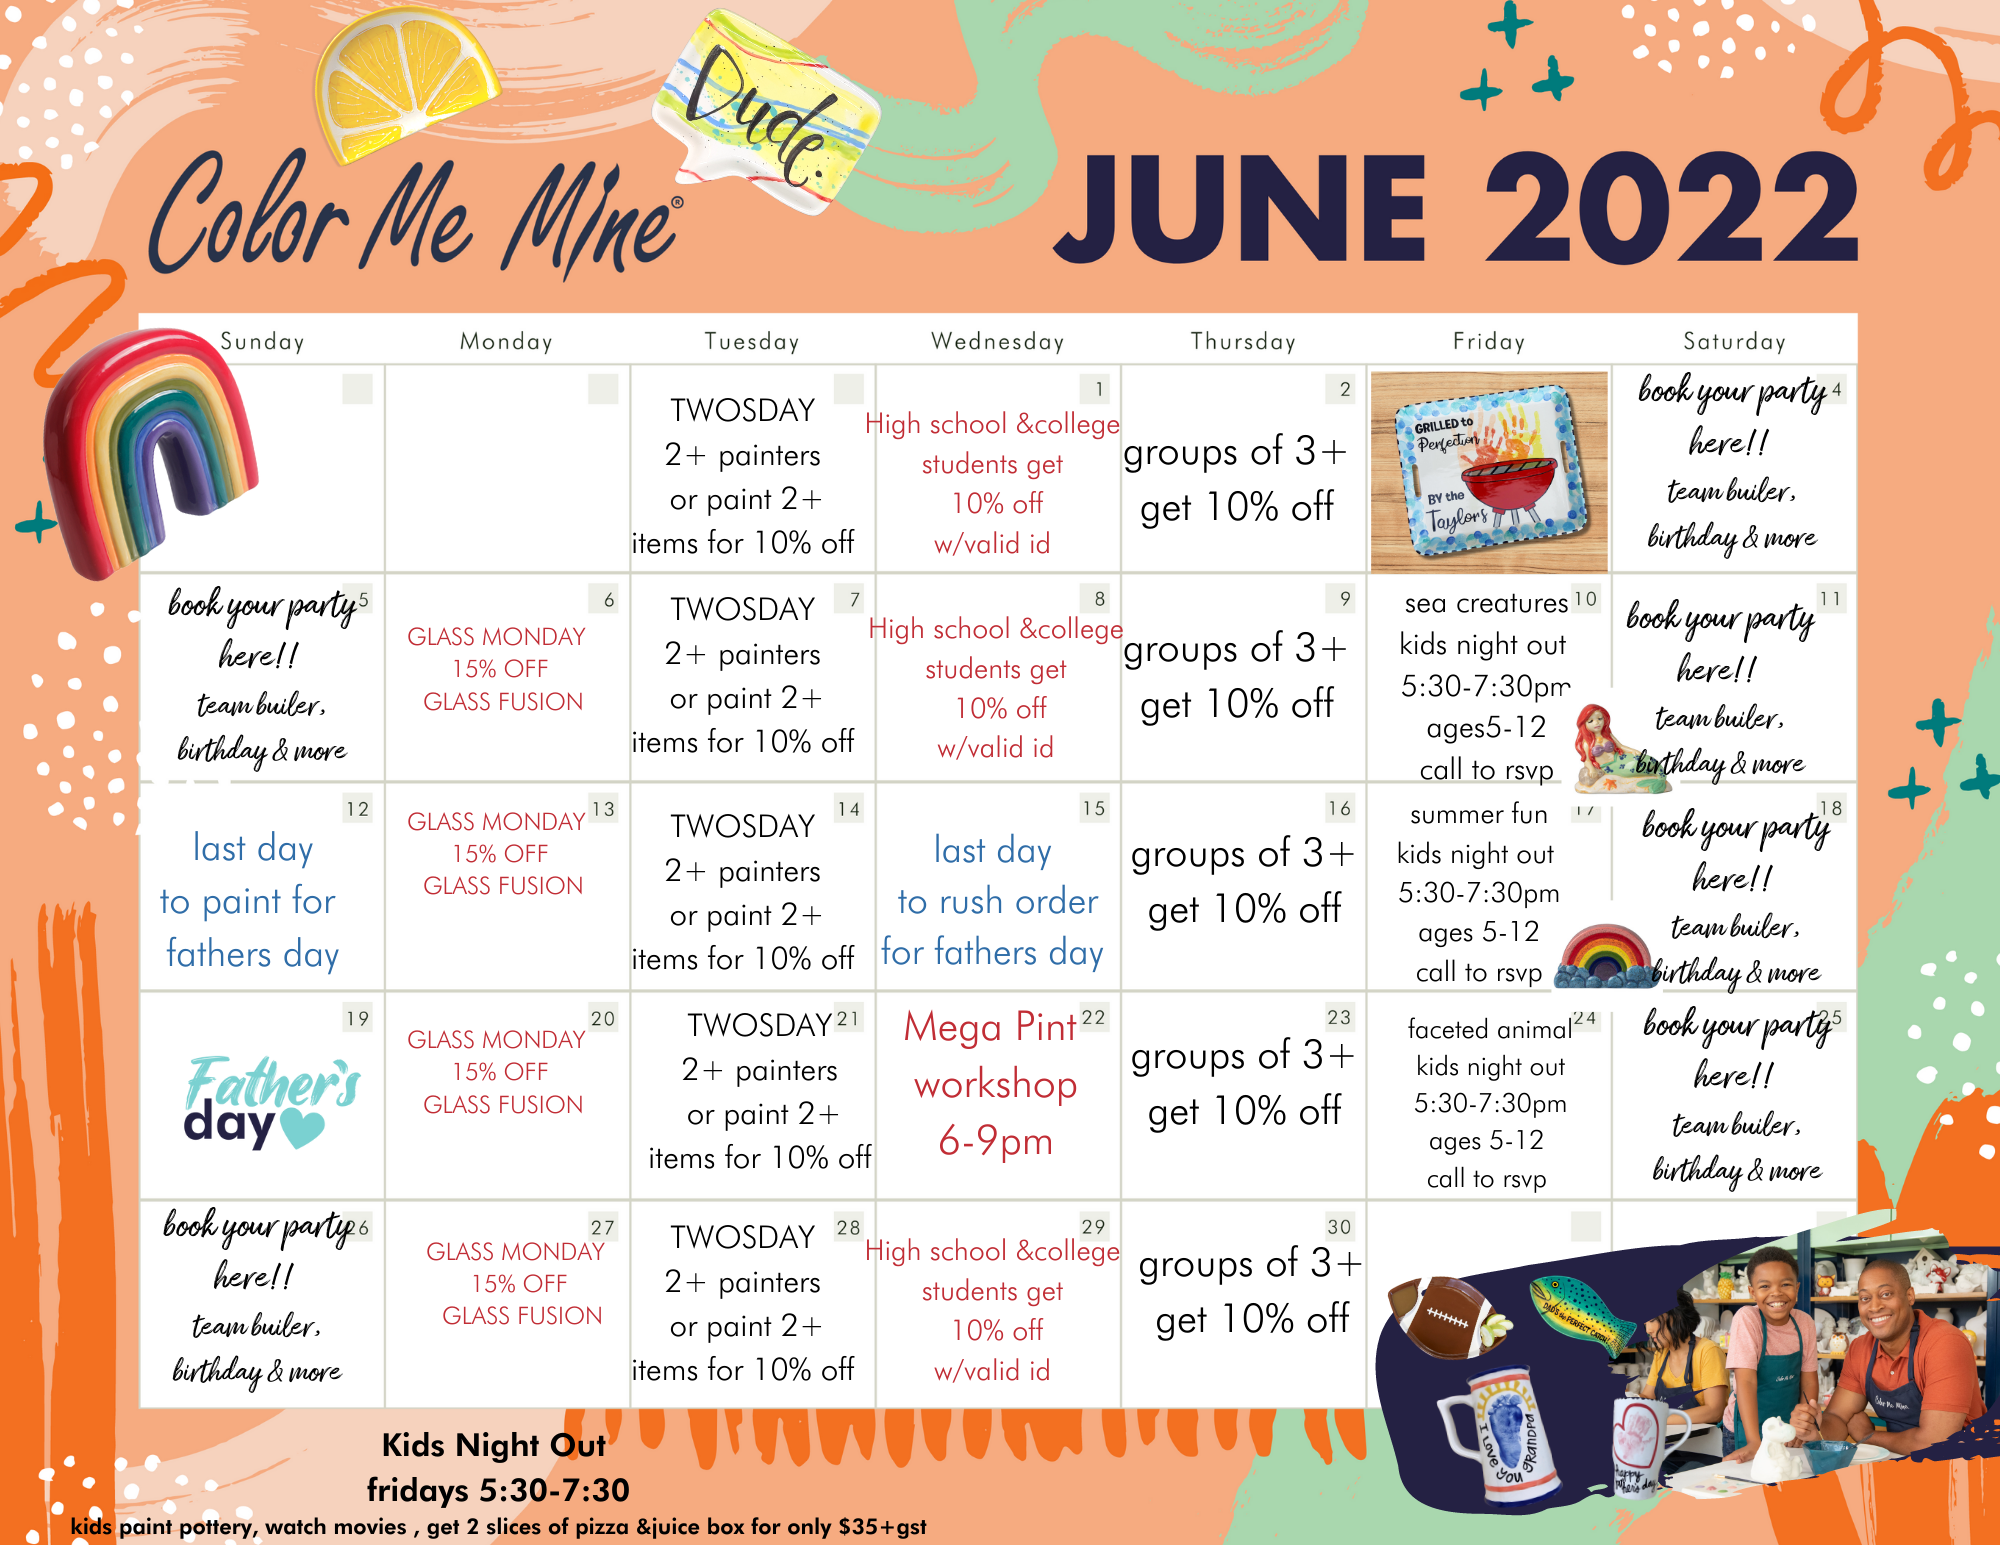 Dude.
Color Me Mine®
JUNE 2022
Sunday Monday Tuesday Wednesday Thursday Friday Saturday
TWOSDAY
2+ painters
or paint 2+
items for 10% off
1
High school &college
students get
10% off
w/valid id
2
groups of 3+
get 10% off
GRILLED to
Perfection
BY the
Taylors
4
book your party
here!!
team builer,
birthday & more
5
book your party
here!!
team builer,
birthday & more
6
GLASS MONDAY
15% OFF
GLASS FUSION
7
TWOSDAY
2+ painters
or paint 2+
items for 10% off
8
High school &college
students get
10% off
w/valid id
9
groups of 3+
get 10% off
10
sea creatures
kids night out
5:30-7:30pm
ages5-12
call to rsvp
11
book your party
here!!
team builer,
birthday & more
12
last day
to paint for
fathers day
13
GLASS MONDAY
15% OFF
GLASS FUSION
14
TWOSDAY
2+ painters
or paint 2+
items for 10% off
15
last day
to rush order
for fathers day
16
groups of 3+
get 10% off
17
summer fun
kids night out
5:30-7:30pm
ages 5-12
call to rsvp
18
book your party
here!!
team builer,
birthday & more
19
Father's
day
20
GLASS MONDAY
15% OFF
GLASS FUSION
21
TWOSDAY
2+ painters
or paint 2+
items for 10% off
22
Mega Pint
workshop
6-9pm
23
groups of 3+
get 10% off
24
faceted animal
kids night out
5:30-7:30pm
ages 5-12
call to rsvp
25
book your party
here!!
team builer,
birthday & more
26
book your party
here!!
team builer,
birthday & more
27
GLASS MONDAY
15% OFF
GLASS FUSION
28
TWOSDAY
2+ painters
or paint 2+
items for 10% off
29
High school &college
students get
10% off
w/valid id
30
groups of 3+
get 10% off
DAD'S the PERFECT CATCH!
I LOVE YOU GRANDPA
happy
father's day
Color Me Mine
Color Me Mine
Kids Night Out
fridays 5:30-7:30
kids paint pottery, watch movies , get 2 slices of pizza &juice box for only $35+gst